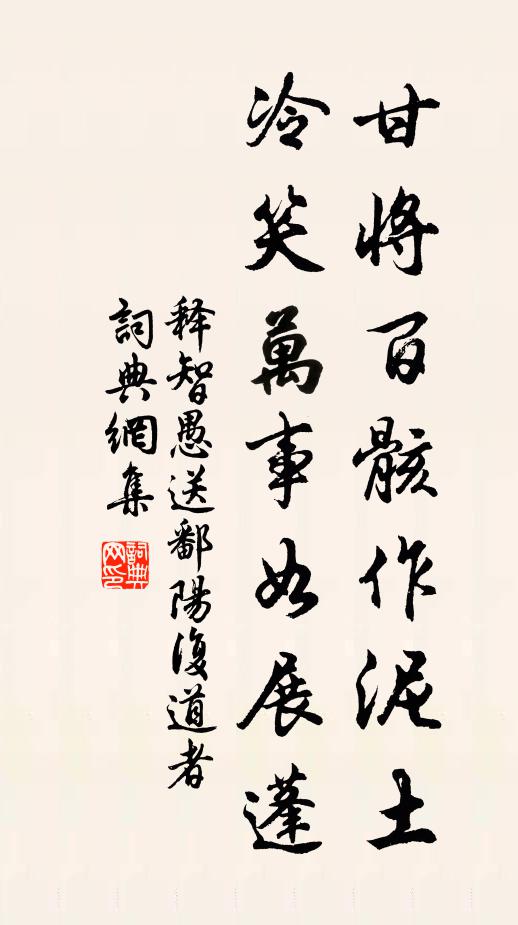 甘將百骸作泥土
冷笑萬事如展蓬
释智愚送鄱陽復道者
詞典網集
詞典
网印